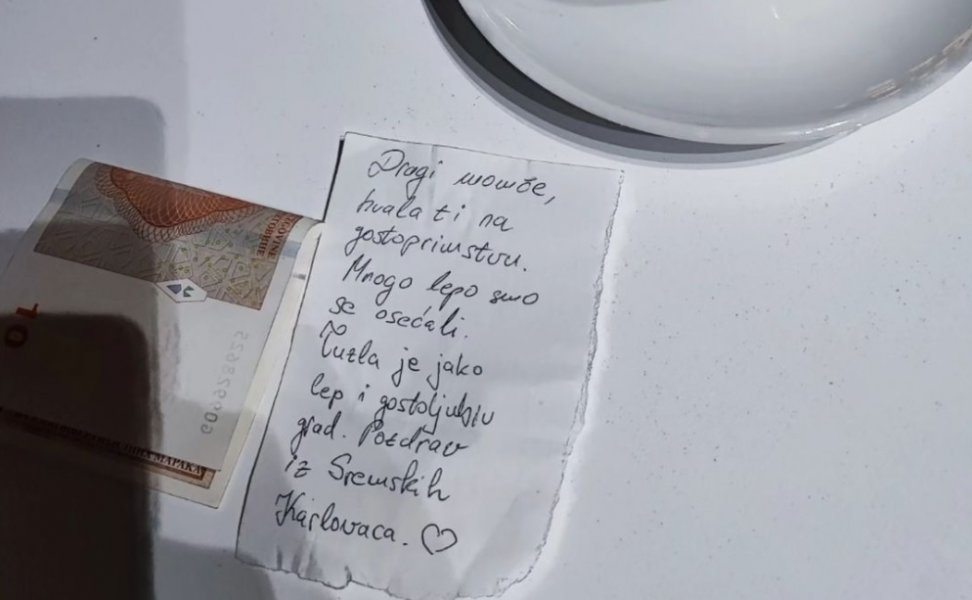 Dragi momče,
hvala ti na
gostoprimstvu.
Mnogo lepo smo
se osećali.
Tuzla je jako
lep i gostoljubiv
grad. Pozdrav
iz Sremskih
Karlovaca. ♡
GOVINE
60928625
МАРАКА